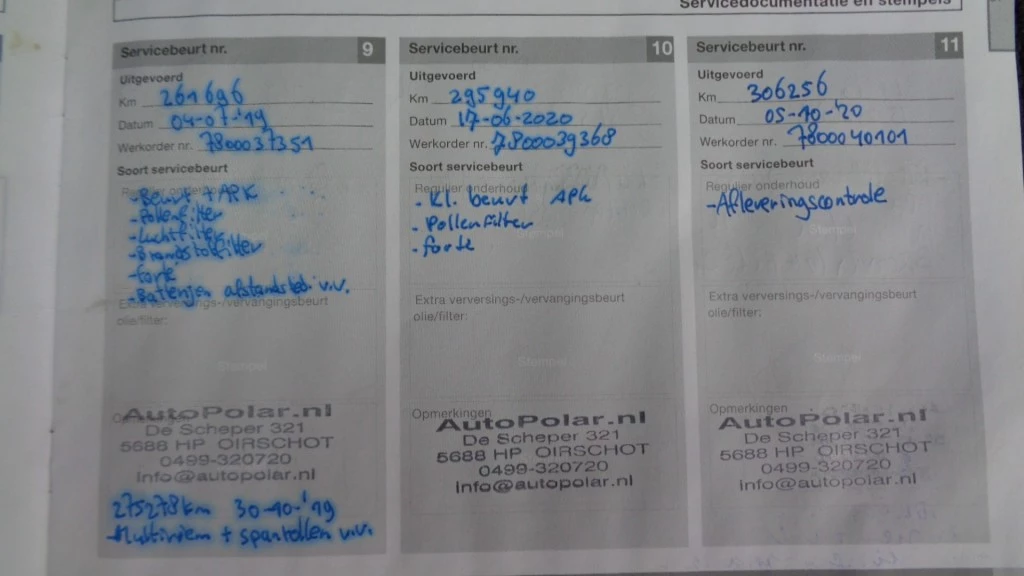 Servicedocumentatie en stempels
Servicebeurt nr. 9
Uitgevoerd
Km 261696
Datum 04-07-'19
Werkorder nr. 7800037351
Soort servicebeurt
Regulier onderhoud
-Beurt + APK
-Pollenfilter
-Luchtfilter
-Brandstoffilter
-forte
-Batterijen afstandsbed. v.v.
Extra verversings-/vervangingsbeurt
olie/filter:
Stempel
AutoPolar.nl
De Scheper 321
5688 HP OIRSCHOT
0499-320720
info@autopolar.nl
275278km 30-10-'19
-Multiriem + spanrollen v.v.
Servicebeurt nr. 10
Uitgevoerd
Km 295940
Datum 17-06-2020
Werkorder nr. 7800039368
Soort servicebeurt
Regulier onderhoud
- Kl. beurt APK
- Pollenfilter
- forte
Stempel
Extra verversings-/vervangingsbeurt
olie/filter:
Stempel
Opmerkingen
AutoPolar.nl
De Scheper 321
5688 HP OIRSCHOT
0499-320720
info@autopolar.nl
Servicebeurt nr. 11
Uitgevoerd
Km 306256
Datum 05-10-'20
Werkorder nr. 7800040101
Soort servicebeurt
Regulier onderhoud
-Afleveringscontrole
Stempel
Extra verversings-/vervangingsbeurt
olie/filter:
Stempel
Opmerkingen
AutoPolar.nl
De Scheper 321
5688 HP OIRSCHOT
0499-320720
info@autopolar.nl